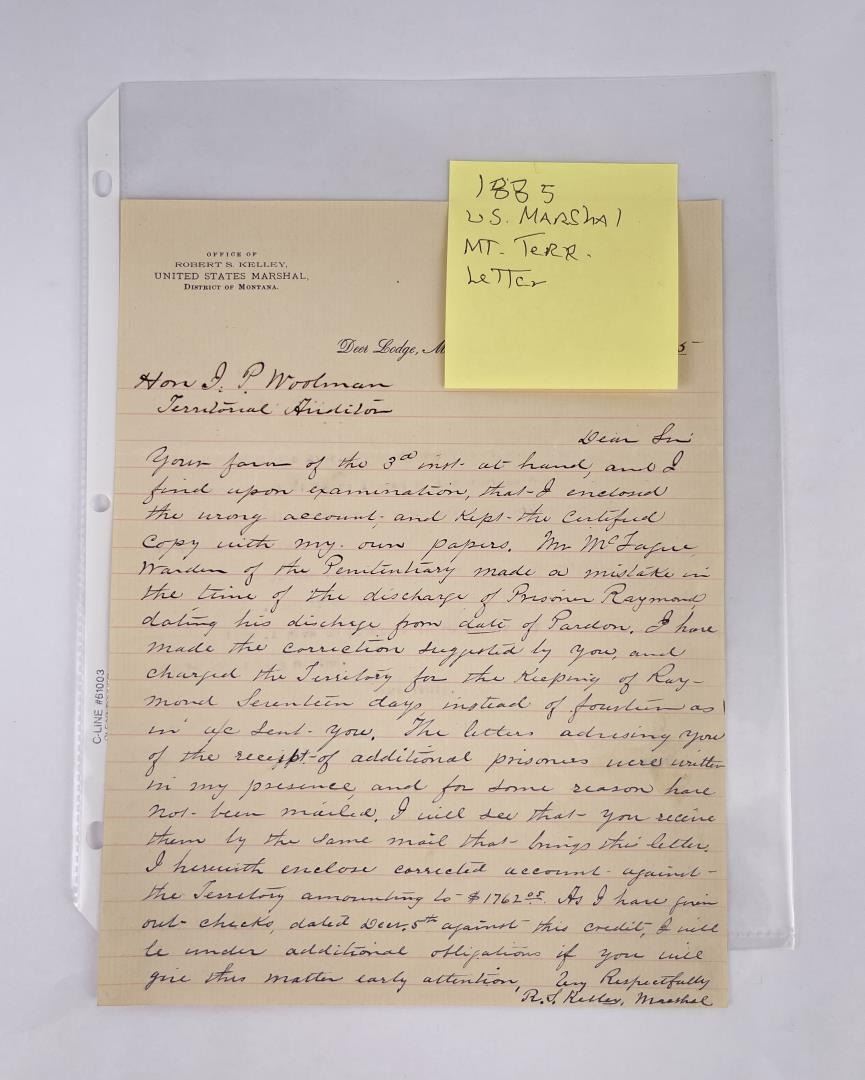 1885
US. MARShAl
MT. TeRR.
LeTTer
OFFICE OF
ROBERT S. KELLEY,
UNITED STATES MARSHAL,
DISTRICT OF MONTANA.
Deer Lodge, M
5
Hon J. P. Woolman
Territorial Auditor
Dear Sir
Your favor of the 3d inst. at hand, and I
find upon examination, that I enclosed
the wrong account, and kept the Certified
Copy with my own papers. Mr McTague,
Warden of the Penitentiary made a mistake in
the time of the discharge of Prisoner Raymond,
dating his discharge from date of Pardon. I have
made the correction suggested by you, and
charged the Territory for the keeping of Ray-
mond Seventeen days instead of fourteen as
in a/c sent you. The letters advising you
of the receipt of additional prisoners were written
in my presence, and for some reason have
not been mailed. I will see that you receive
them by the same mail that brings this letter.
I herewith enclose corrected account against
the Territory amounting to $1762.05. As I have given
out checks, dated Decr. 5th against this credit, I will
be under additional obligations if you will
give this matter early attention, Very Respectfully
R. S. Kelley, Marshal
C-LINE #61003